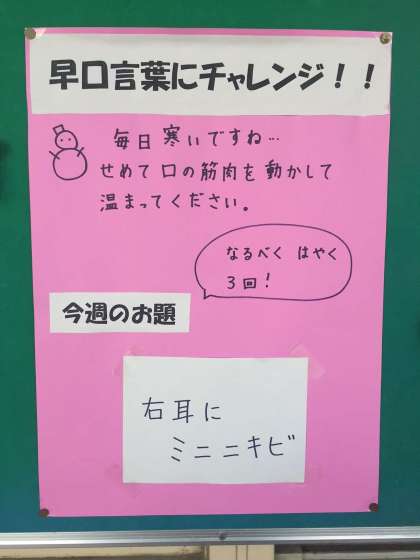 早口言葉にチャレンジ！！
毎日寒いですね…
せめて口の筋肉を動かして
温まってください。
なるべく はやく
3回！
今週のお題
右耳に
ミニニキビ